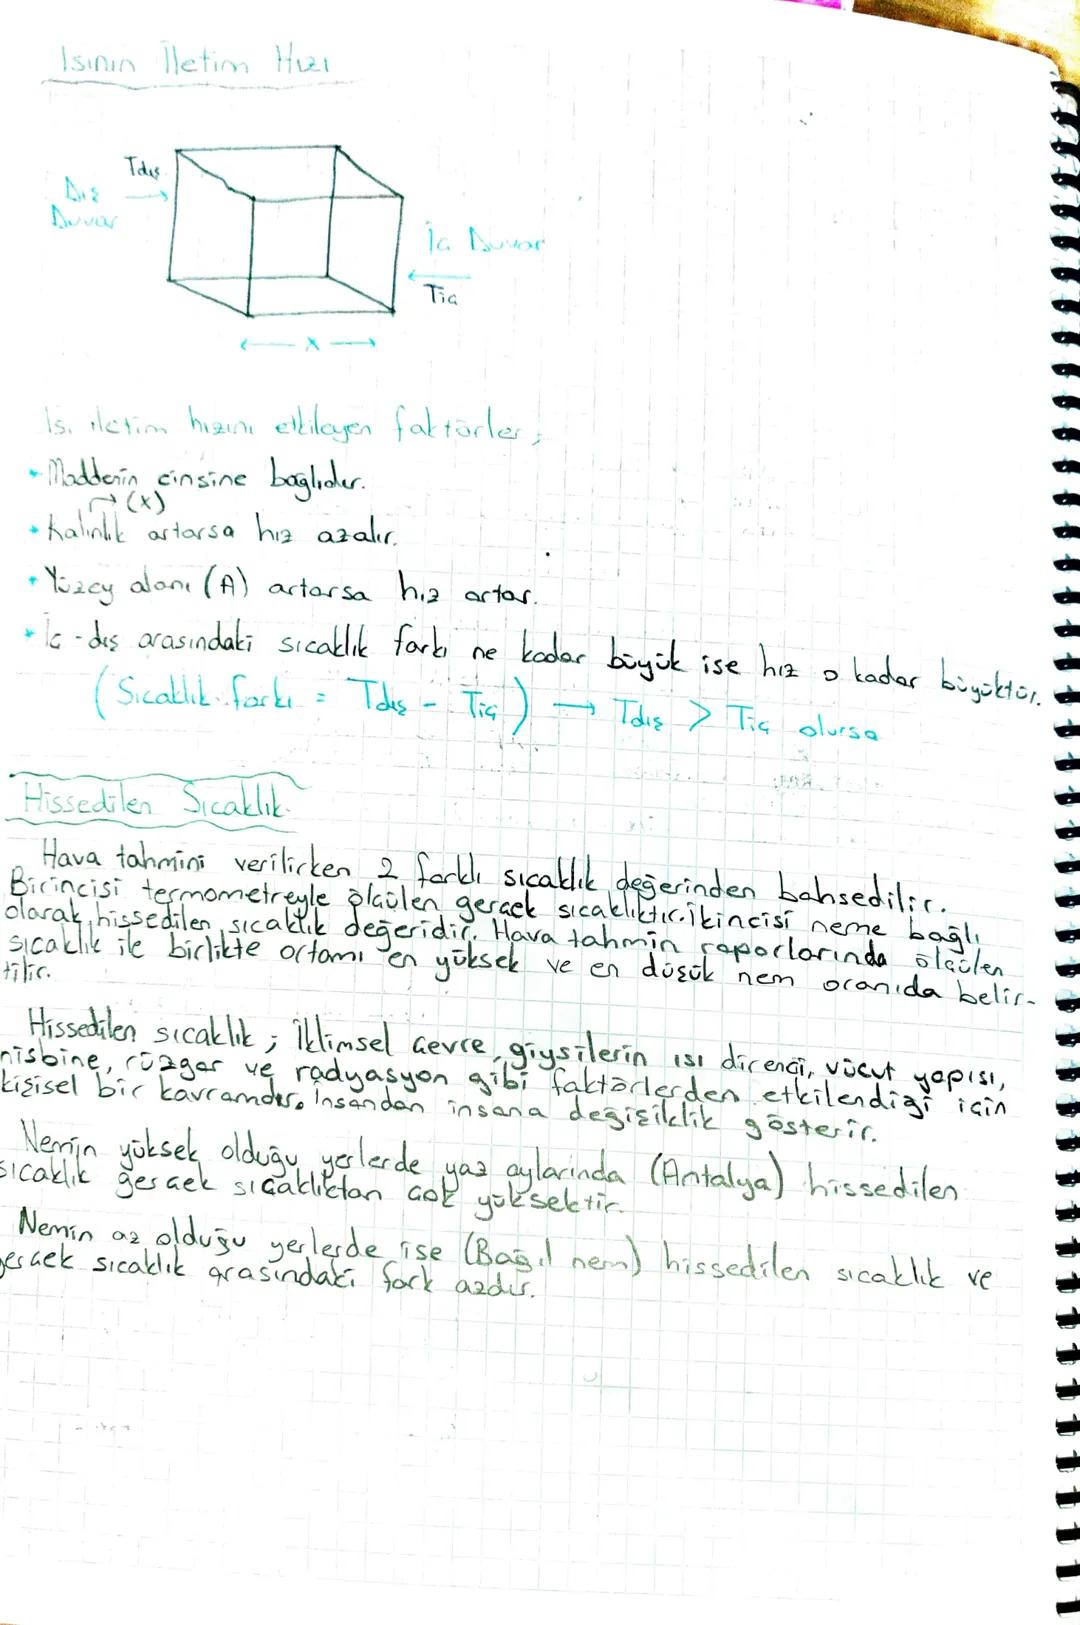 Isının İletim Hızı
Tdış
Dış
Duvar
İç Duvar
Tiç
x
Isı iletim hızını etkileyen faktörler;
• Maddenin cinsine bağlıdır.
→(x)
• Kalınlık artarsa hız azalır.
• Yüzey alanı (A) artarsa hız artar.
• İç - dış arasındaki sıcaklık farkı ne kadar büyük ise hız o kadar büyüktür.
(Sıcaklık farkı = Tdış - Tiç) → Tdış > Tiç olursa
Hissedilen Sıcaklık
Hava tahmini verilirken 2 farklı sıcaklık değerinden bahsedilir.
Birincisi termometreyle ölçülen gerçek sıcaklıktır. İkincisi neme bağlı
olarak hissedilen sıcaklık değeridir. Hava tahmin raporlarında ölçülen
sıcaklık ile birlikte ortamı en yüksek ve en düşük nem oranıda belir-
tilir.
Hissedilen sıcaklık; İklimsel çevre, giysilerin ısı direnci, vücut yapısı,
nisbine, rüzgar ve radyasyon gibi faktörlerden etkilendiği için
kişisel bir kavramdır. İnsandan insana değişiklik gösterir.
Nemin yüksek olduğu yerlerde yaz aylarında (Antalya) hissedilen
sıcaklık gerçek sıcaklıktan çok yüksektir.
Nemin az olduğu yerlerde ise (Bağıl nem) hissedilen sıcaklık ve
gerçek sıcaklık arasındaki fark azdır.